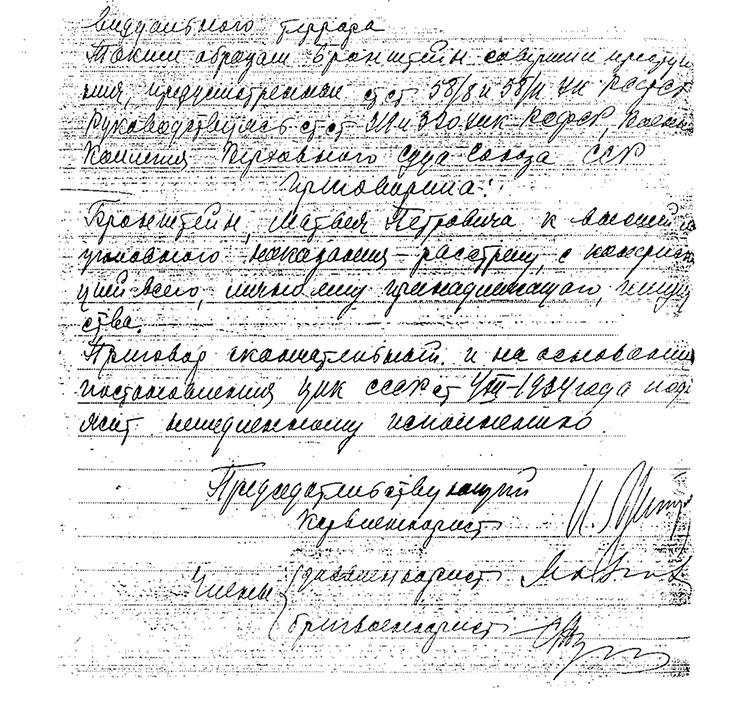 видуального террора
Таким образом Бронштейн совершил преступ
ния, предусмотренные ст.ст. 58/8 и 58/11 УК РСФСР
Руководствуясь ст.ст. 319 и 320 УПК РСФСР, Военн
Коллегия Верховного Суда Союза ССР
Приговорила:
Бронштейн, Матвея Петровича к высшей м
уголовного наказания – расстрелу, с конфиска
цией всего, лично ему принадлежащего, имущ
ства.
Приговор окончательный и на основании
постановления ЦИК СССР от 1/XII-1934 года подл
жит немедленному исполнению.
Председательствующий
Корвоенюрист
Члены
Диввоенюрист
Бригвоенюрист